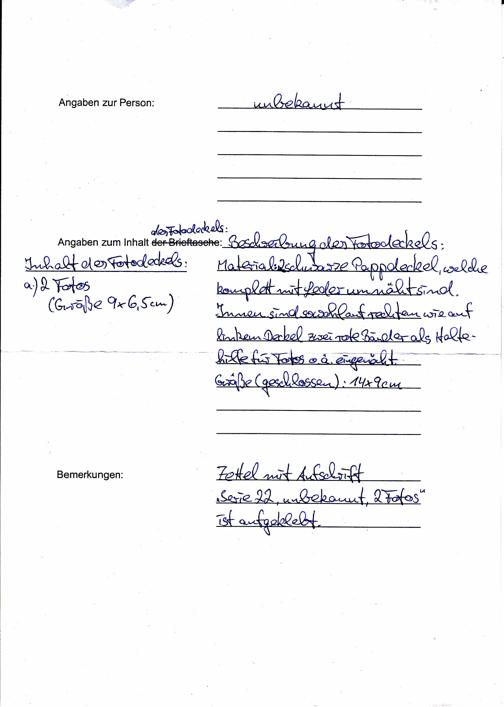 Angaben zur Person: unbekannt
des Fotodeckels:
Angaben zum Inhalt der Brieftasche: Beschreibung des Fotodeckels:
Inhalt des Fotodeckels:
a) 2 Fotos
(Größe 9x6,5cm)
Material: 2 schwarze Pappdeckel, welche
komplett mit Leder umnäht sind.
Innen sind sowohl auf rechten wie auf
linken Deckel zwei rote Bänder als Halte-
hilfe für Fotos o.ä. eingenäht.
Größe (geschlossen): 14x9cm
Bemerkungen: Zettel mit Aufschrift
"Serie 22, unbekannt, 2 Fotos"
ist aufgeklebt.